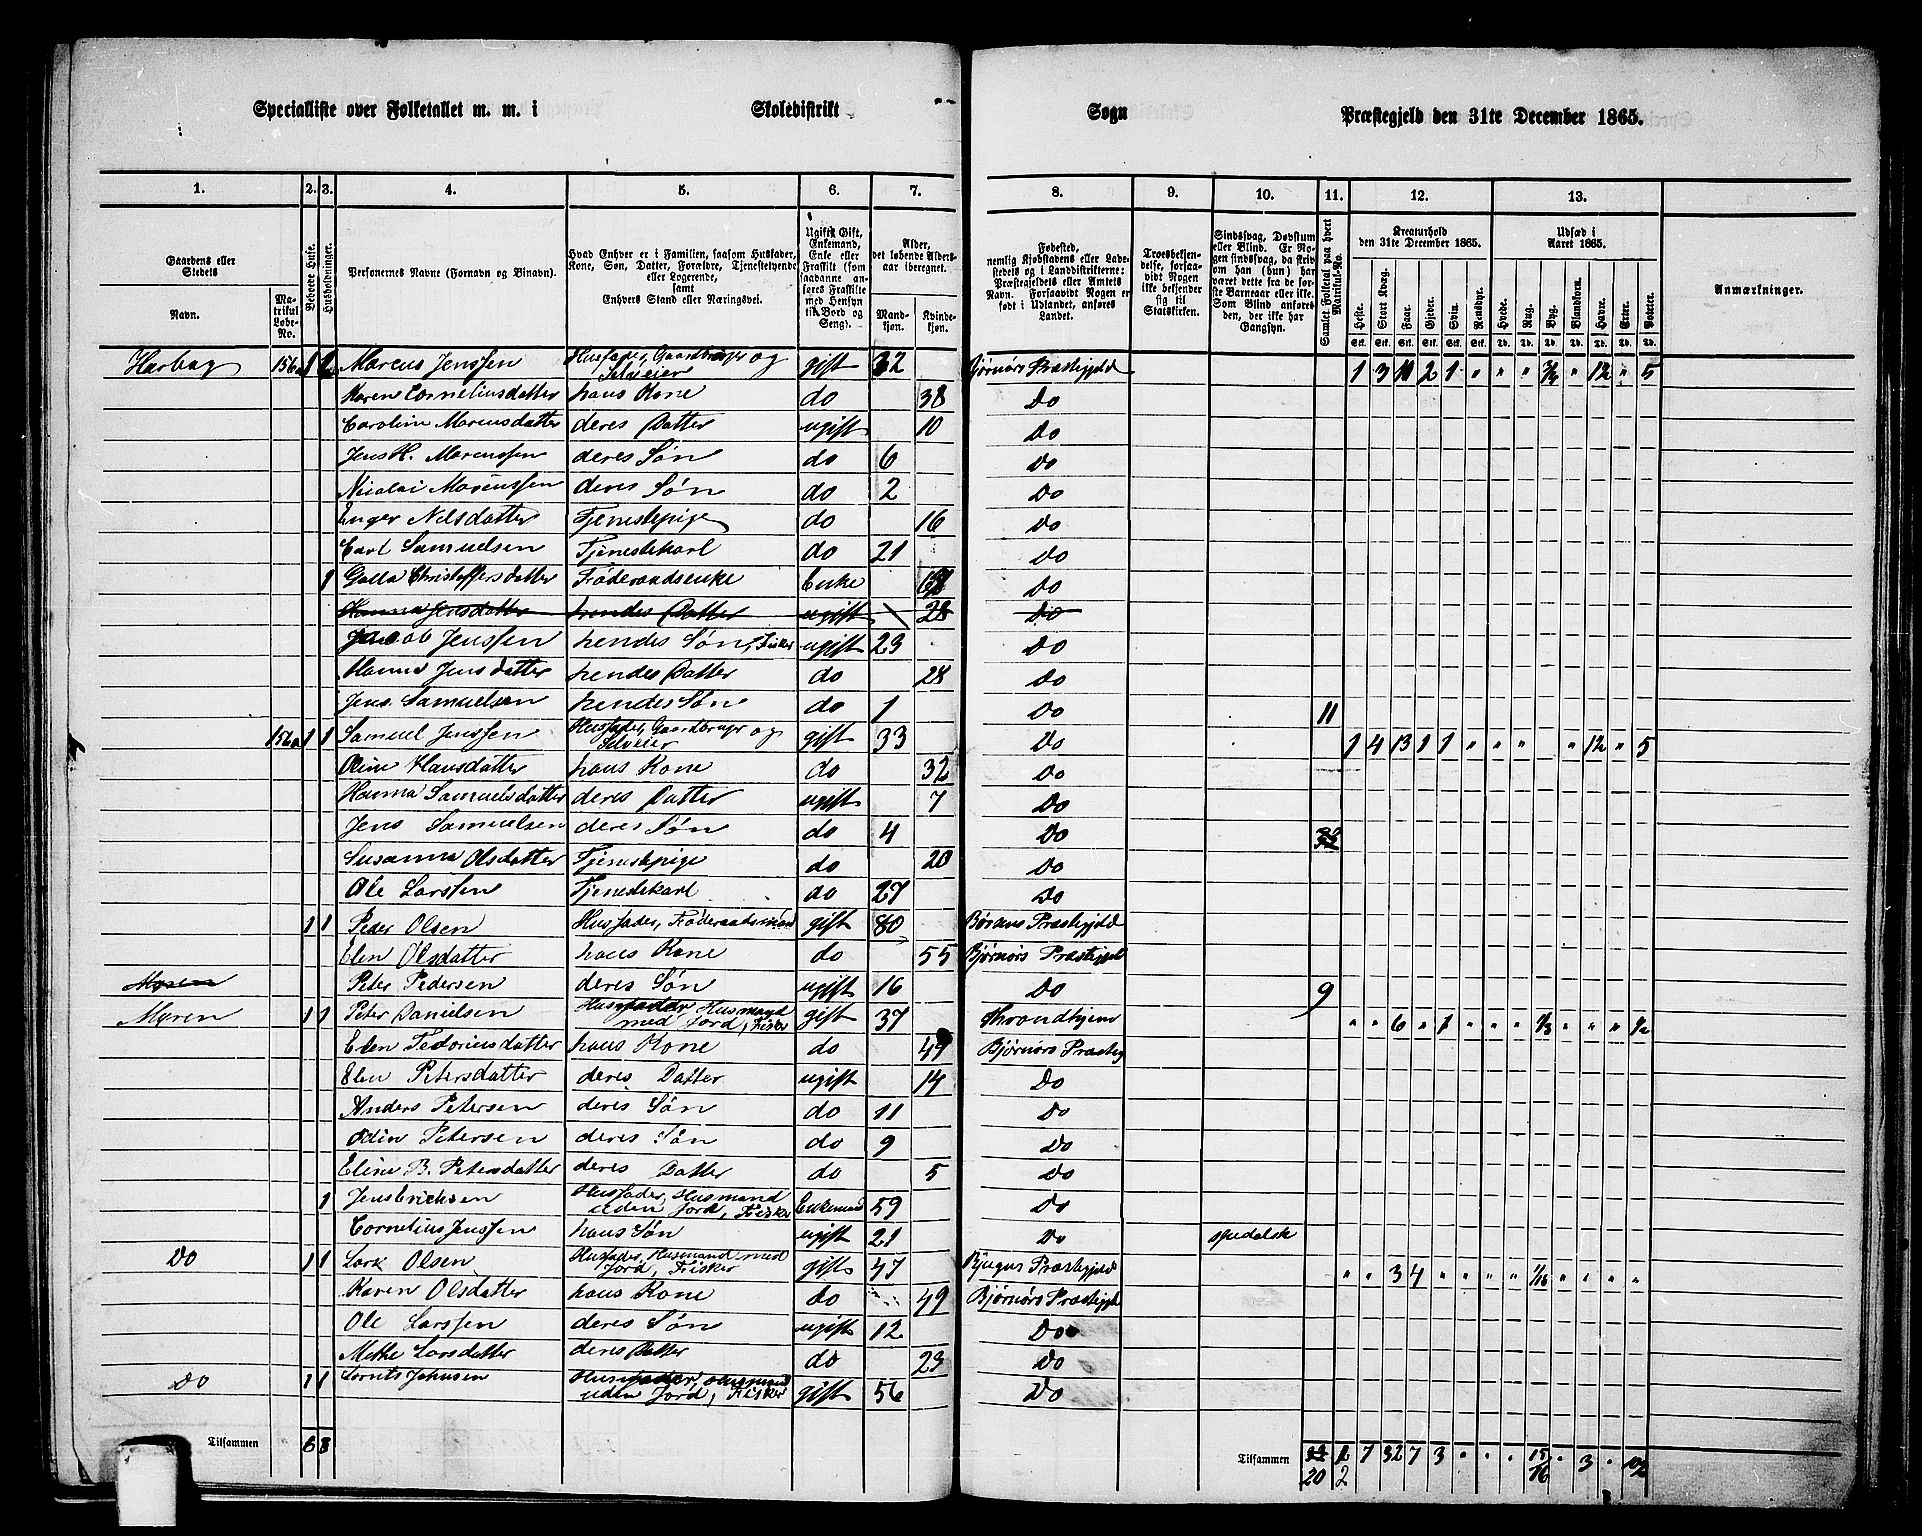 Specialliste over Folketallet m. m. i Skoledistrikt Sogn Præstegjeld den 31te December 1865.
1. 2. 3. 4. 5. 6. 7. 8. 9. 10. 11. 12. 13.
Gaardens eller Stedets
Navn.
Matrikul Løbe-No.
Beboede Huse.
Husholdninger.
Personernes Navne (Fornavn og Binavn).
Hvad Enhver er i Familien, saasom Husfader, Kone, Søn, Datter, Forældre, Tjenestetyende eller Logerende, samt Enhvers Stand eller Næringsvei.
Ugift, Gift, Enkemand, Enke eller Fraskilt (som saadanne anføres Fraskilte med Hensyn til Bord og Seng).
Alder, det løbende Aldersaar iberegnet.
Mandkjøn. Kvindekjøn.
Fødested, nemlig Kjøbstadens eller Ladestedets og i Landdistrikterne: Præstegjeldets eller Amtets Navn. Forsaavidt Nogen er født i Udlandet, anføres Landet.
Troesbekjendelse, forsaavidt Nogen ikke bekjender sig til Statskirken.
Sindssvag, Døvstum eller Blind. Er Nogen sindssvag, da skrives om han (hun) har været dette fra de første Barneaar eller ikke. Som Blind anføres den, der ikke har Gangsyn.
Samlet Folketal paa hvert Matrikul-No.
Kreaturhold den 31te December 1865.
Heste. Stort Kvæg. Faar. Gjeder. Svin. Rensdyr.
Udsæd i Aaret 1865.
Hvede. Rug. Byg. Blandkorn. Havre. Erter. Poteter.
Anmærkninger.
Harbag 156a 1 1 Marcus Jenssen Husfader, Gaardbruger og Selveier gift 32 Bjørnørs Præstegjeld 1 3 11 2 1 " " " " 12 " 5
Karen Corneliusdatter hans Kone do 38 Do
Caroline Marcusdatter deres Datter ugift 10 Do
Jens H. Marcussen deres Søn do 6 Do
Nicolai Marcussen deres Søn do 2 Do
Inger Nilsdatter Tjenestepige do 16 Do
Carl Samuelsen Tjenestekarl do 21 Do
1 Golla Christoffersdatter Føderaadsenke Enke Do
Hanna Jensdatter hendes Datter ugift 28 Do
Jacob Jenssen hendes Søn, Fisker ugift 23 Do
Hanna Jensdatter hendes Datter do 28 Do
Jens Samuelsen hendes Søn do 1 Do 11
156a 1 1 Samuel Jenssen Husfader, Gaardbruger og Selveier gift 33 Do 1 4 13 1 1 " " " " 12 " 5
Oline Hansdatter hans Kone do 32 Do
Hanna Samuelsdatter deres Datter ugift 7 Do
Jens Samuelsen deres Søn do 4 Do
Susanna Olsdatter Tjenestepige do 20 Do
Ole Larssen Tjenestekarl do 27 Do
1 1 Peder Olsen Husfader, Føderaadsmand gift 80 Præstegjeld
Elen Olsdatter hans Kone do 55 Bjørnørs Præstegjeld
Myren Peter Pedersen deres Søn ugift 16 Do 9
Myren 1 1 Peter Danielsen Husfader, Husmand med Jord, Fisker gift 37 Throndhjem " " 6 " 1 " " " 1/3 " " " 1/2
Elen Fedoriusdatter hans Kone do Bjørnørs Præsteg
Elen Petersdatter deres Datter ugift 14 Do
Anders Petersen deres Søn do 11 Do
Odin Petersen deres Søn do 9 Do
Eline B. Petersdatter deres Datter do 5 Do
1 Jens Erichsen Husfader, Husmand uden Jord, Fisker Enkemand 59 Do
Cornelius Jenssen hans Søn ugift 21 Do spedalsk
Do 1 1 Lars Olsen Husfader, Husmand med Jord, Fisker gift 47 Bjugns Præstegjeld " " 3 4 " " " " 1/16 " " " "
Karen Olsdatter hans Kone do 49 Bjørnørs Præstegjeld
Ole Larssen deres Søn ugift 12 Do
Mette Larsdatter deres Datter do 23 Do
Do 1 1 Lornts Johnsen Husfader, Husmand uden Jord, Fisker gift 56 Do
Tilsammen 6 8 Tilsammen 20 2 7 32 7 3 " " " 15/16 " 3 "